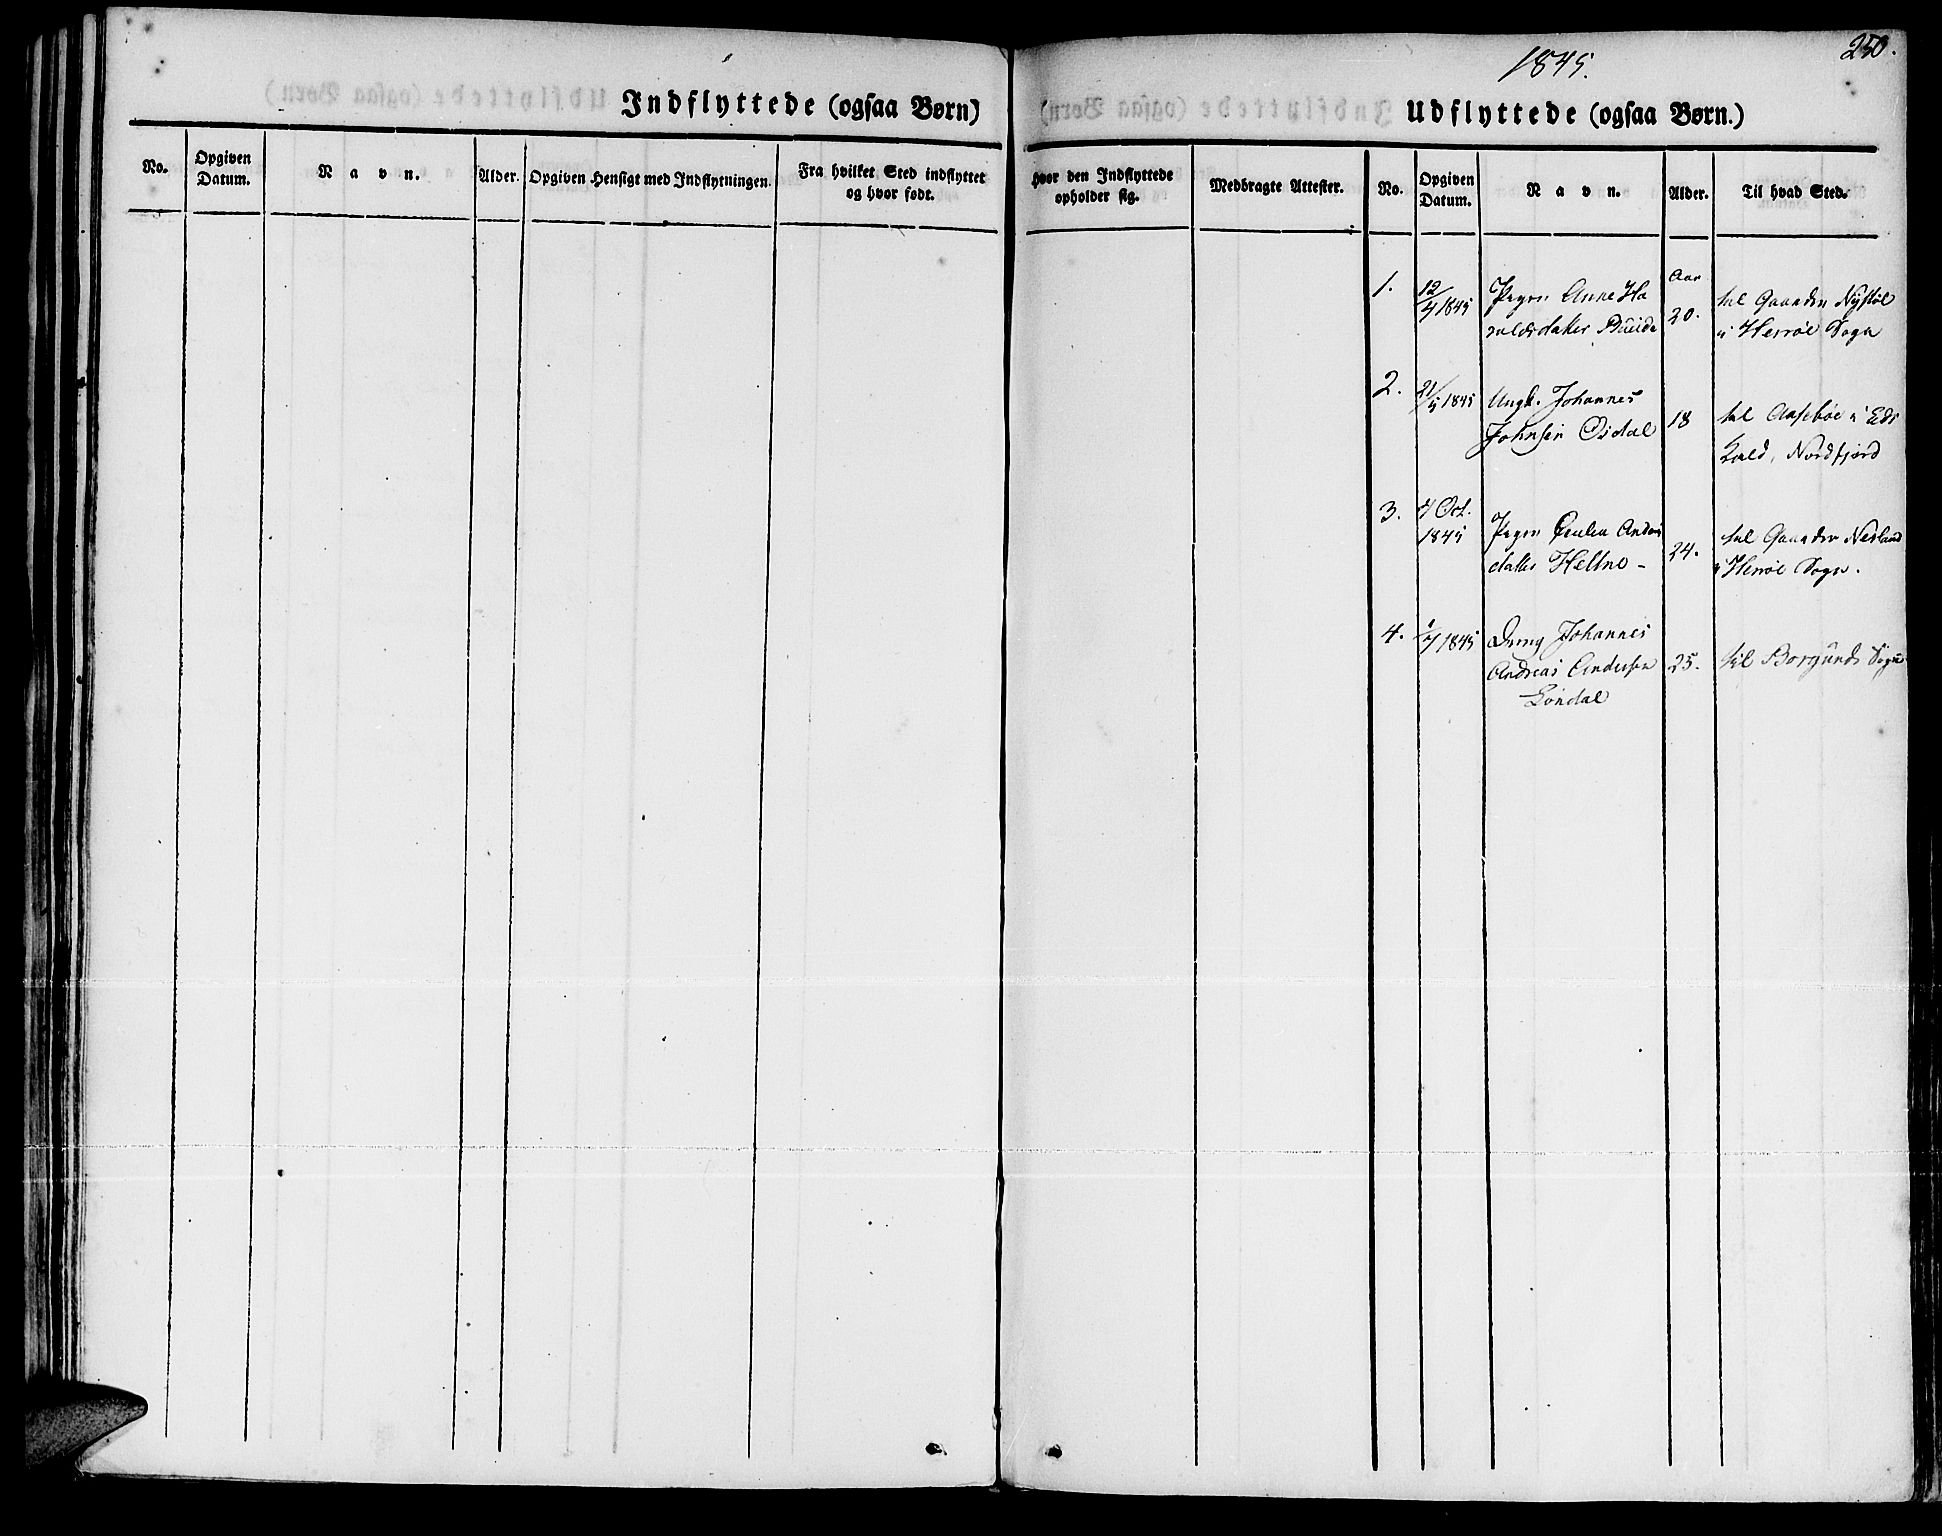 Indflyttede (ogsaa Børn)
No.
Opgiven
Datum.
Navn.
Alder.
Opgiven Hensigt med Indflytningen.
Fra hvilket Sted indflyttet
og hvor født.
1845.
250.
Udflyttede (ogsaa Børn.)
Hvor den Indflyttede
opholder sig.
Medbragte Attester.
No.
Opgiven
Datum.
Navn.
Alder.
Til hvad Sted.
1.
1845
Pigen Anne Ha
raldsdatter
Aar
20.
til Gaarden
i Herröe Sogn
2.
1845
Ungk. Johannes
Johnsen Osdal
18
til Aasebøe i Eds
Nordfjord
3.
Oct.
1845
Pigen
datter Heltne -
24.
til Gaarden
i Herröe Sogn.
4.
1845
Dreng Johannes
Andreas Andersen
25.
til Borgunds Sogn